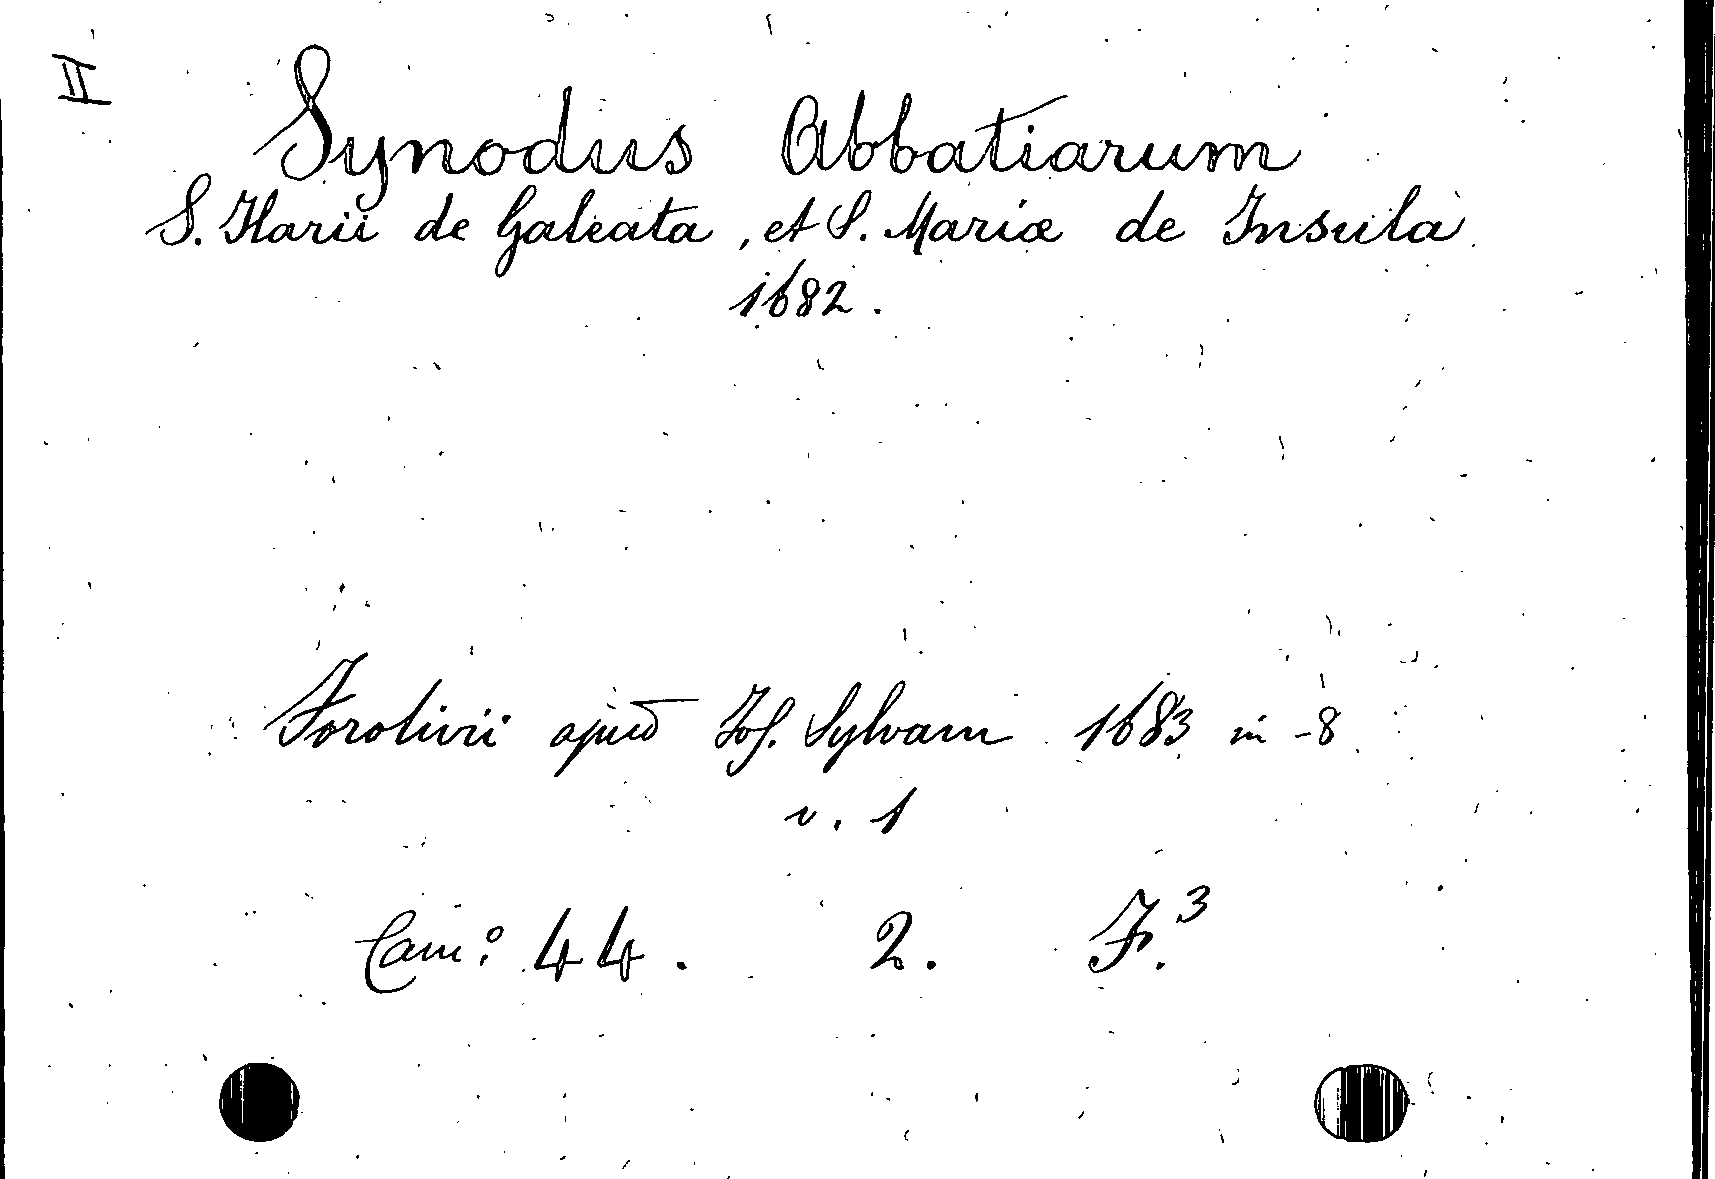 II
Synodus Abbatiarum
S. Ilarii de Galeata, et S. Mariæ de Insula
1682.
Forolivii apud Jos. Sylvam 1683 in -8
v. 1
Cam.º 44. 2. F.³